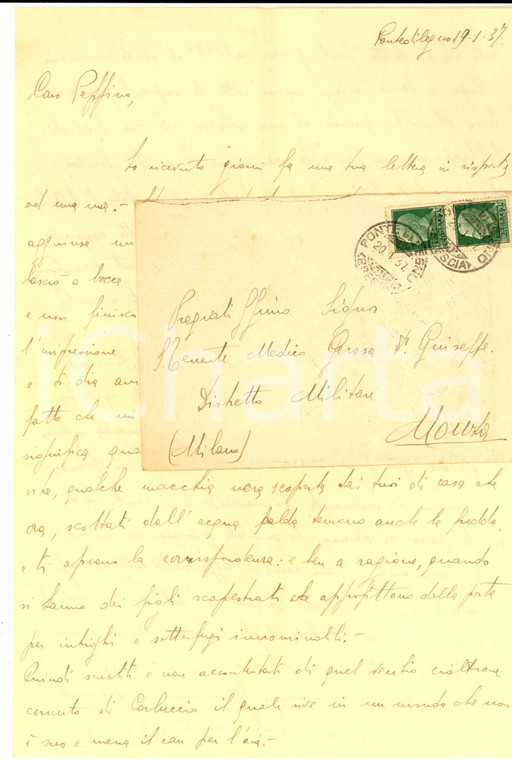 Pontedilegno 19-1-37.
Caro Peppino,
Ho ricevuto giorni fa una tua lettera in risposta
ad una mia.-
aggiunse un
lasciò a bocca
e non finisco
l'impressione
e ti dia
fatto che mi
significa qua
PONTE DI LEGNO
(BRESCIA)
20.1.37.
Pregiatissimo Signor
S. Tenente Medico Grossa Dr. Giuseppe.
Distretto Militare
(Milano)
Monza
iCharta
vita, qualche macchia nera scoperta dai tuoi di casa che
ora, scottati dall'acqua calda temono anche la fredda,
e ti aprono la corrispondenza: e ben a ragione, quando
si hanno dei figli scapestrati che approfittano della posta
per intrighi e sotterfugi innominabili.-
Quindi smetti e non
cornuto di Carluccio il quale vive in un mondo che non
è suo e mena il can per l'aia.-